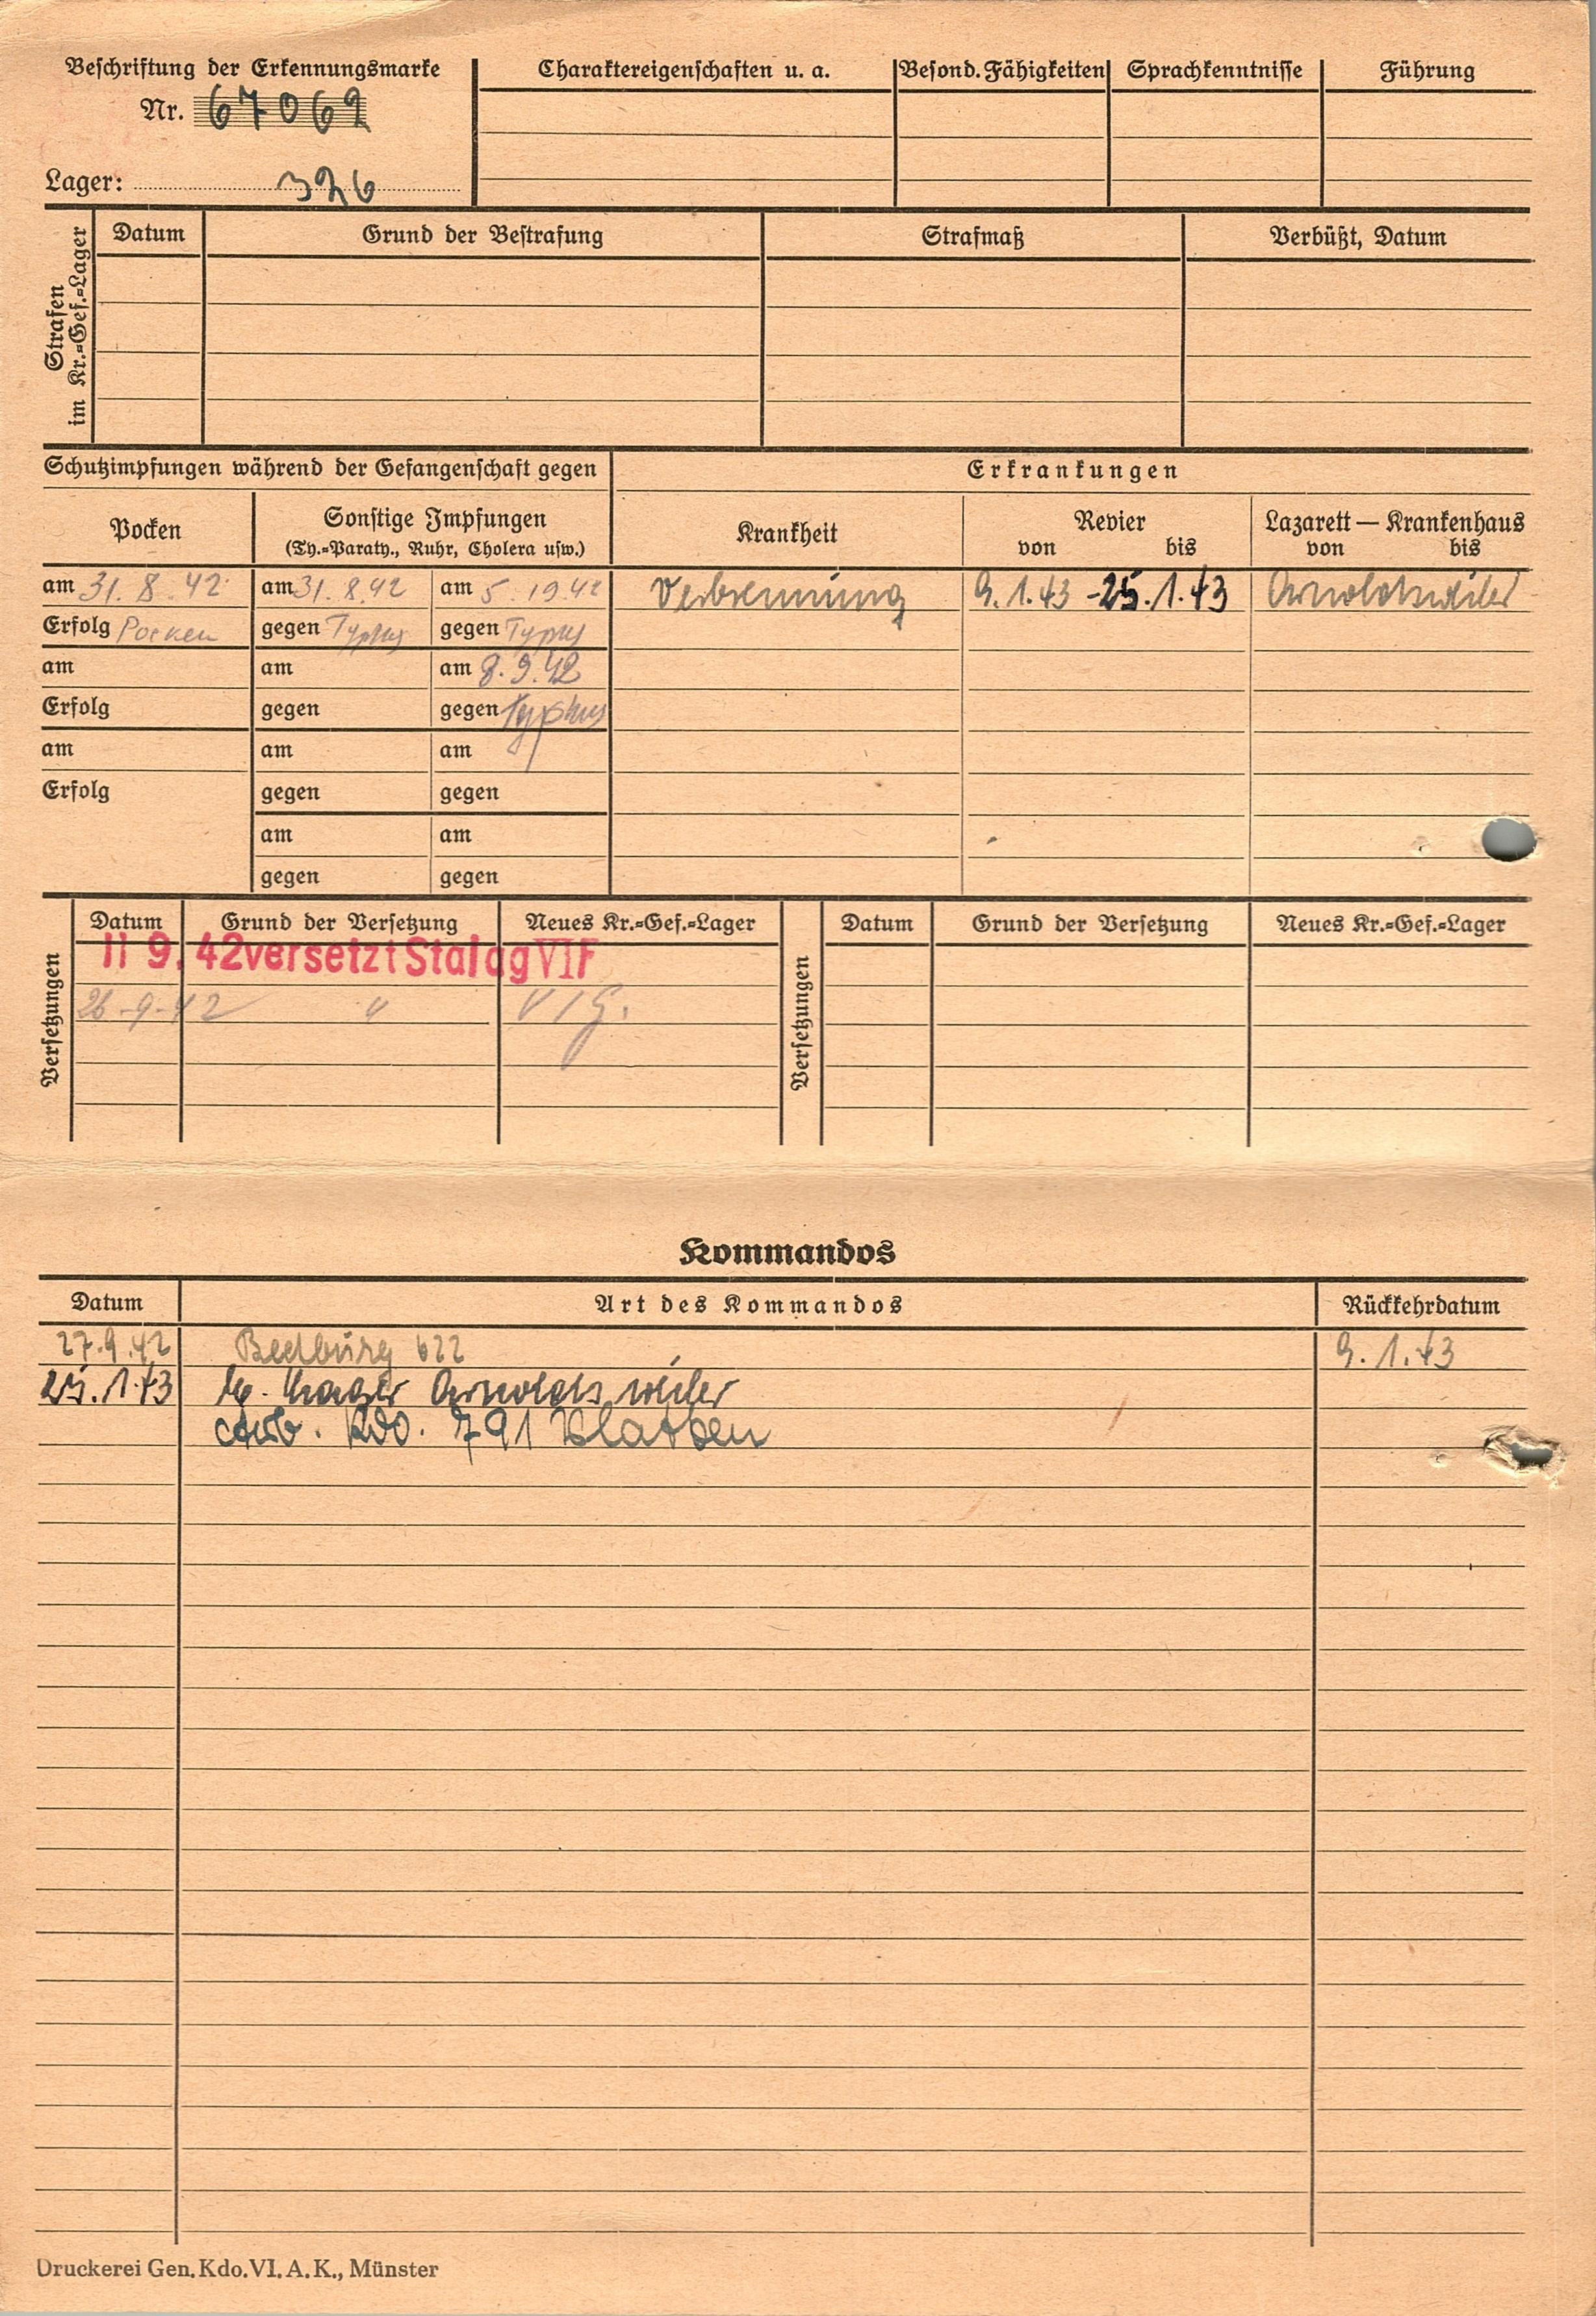 Beschriftung der Erkennungsmarke
Nr. 67069
Lager: 326
Charaktereigenschaften u. a.
Besond. Fähigkeiten
Sprachkenntnisse
Führung
Strafen im Kr.=Gef.=Lager
Datum
Grund der Bestrafung
Strafmaß
Verbüßt, Datum
Schutzimpfungen während der Gefangenschaft gegen
Erkrankungen
Pocken
Sonstige Impfungen
(Ty.=Paraty., Ruhr, Cholera usw.)
Krankheit
Revier
von bis
Lazarett — Krankenhaus
von bis
am 31. 8. 42 am 31. 8. 42 am 5. 19 42 Verbrennung 9. 1. 43 - 25. 1. 43 Arnoldsweiler
Erfolg Pocken gegen Typhus gegen Typhus
am am am 8. 9. 42
Erfolg gegen gegen Typhus
am am am
Erfolg gegen gegen
am am
gegen gegen
Versetzungen
Datum Grund der Versetzung Neues Kr.=Gef.=Lager
11 9. 42 versetzt Stalag VI F
26.9.42 " VI G.
Versetzungen
Datum Grund der Versetzung Neues Kr.=Gef.=Lager
Kommandos
Datum Art des Kommandos Rückkehrdatum
27.9.42 Bedburg 622 9. 1. 43
25. 1. 43 Lager Arnoldsweiler
Arb. Kdo. 791 Blatzen
Druckerei Gen. Kdo. VI. A. K., Münster